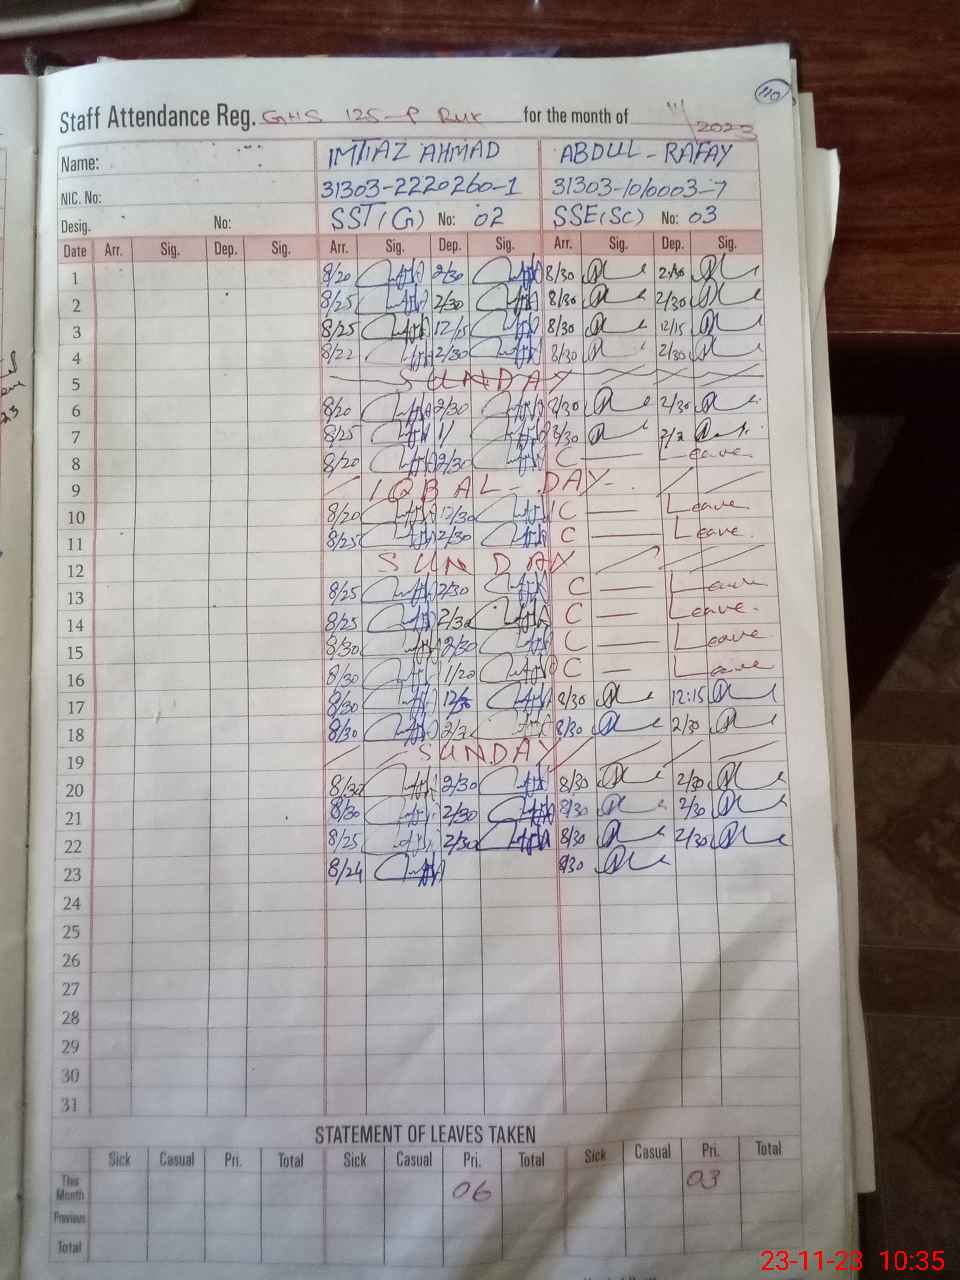 110
Staff Attendance Reg. GHS 125-P RYK for the month of 11/2023
Name: IMTIAZ AHMAD ABDUL-RAFAY
NIC. No: 31303-2220260-1 31303-1010003-7
Desig. No: SST(G) No: 02 SSE(SC) No: 03
Date Arr. Sig. Dep. Sig. Arr. Sig. Dep. Sig. Arr. Sig. Dep. Sig.
1 8/20 2/30 8/30 2/30
2 8/25 2/30 8/30 2/30
3 8/25 12/15 8/30 12/15
4 8/22 2/30 8/30 2/30
5 SUNDAY
6 8/20 2/30 8/30 2/30
7 8/25 8/30
8 8/20 2/30 C — Leave
9 IQBAL DAY
10 8/20 12/30 C — Leave
11 8/25 2/30 C — Leave
12 SUNDAY
13 8/25 2/30 C — Leave
14 8/25 2/30 C — Leave
15 8/30 2/30 C — Leave
16 8/30 1/20 C — Leave
17 8/30 8/30 12:15
18 8/30 8/30 2/30
19 SUNDAY
20 8/30 2/30 8/30 2/30
21 8/30 2/30 8/30 2/30
22 8/25 2/30 8/30 2/30
23 8/24 8/30
24
25
26
27
28
29
30
31
STATEMENT OF LEAVES TAKEN
Sick Casual Pri. Total Sick Casual Pri. Total Sick Casual Pri. Total
This Month 06 03
Previous
Total
23-11-23 10:35